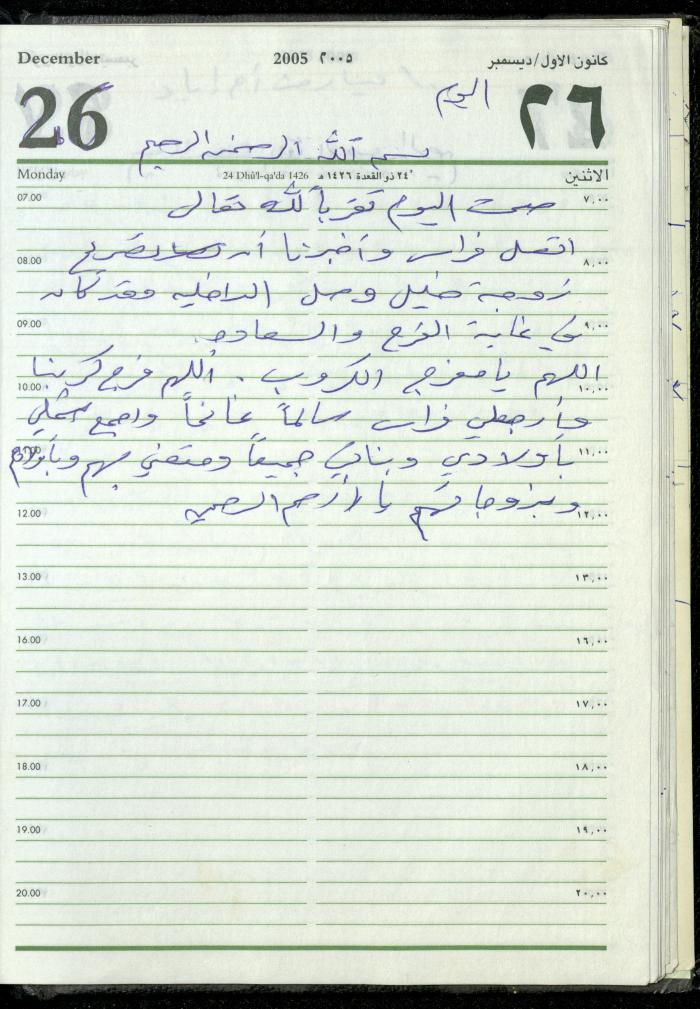 December 2005 ٢٠٠٥ كانون الاول/ديسمبر
26 اليوم ٢٦
بسم الله الرحمن الرحيم
Monday 24 Dhû'l-qa'da 1426 ٢٤ ذو القعدة ١٤٢٦ هـ الاثنين
07.00 صمت اليوم تقرباً لله تعالى ٧,٠٠
اتصل فراس وأخبرنا أن تصريح
08.00 ٨,٠٠
زوجة خليل وصل الداخليه وقد كان
09.00 في غاية الفرح والسعاده ٩,٠٠
اللهم يا مفرج الكروب . اللهم فرج كربنا
10.00 ١٠,٠٠
وأرجعلي فراس سالماً غانماً واجمع شملي
11.00 بأولادي وبناتي جميعاً ومتعني بهم ١١,٠٠
وبزوجاتهم يا أرحم الراحمين
12.00 ١٢,٠٠
13.00 ١٣,٠٠
16.00 ١٦,٠٠
17.00 ١٧,٠٠
18.00 ١٨,٠٠
19.00 ١٩,٠٠
20.00 ٢٠,٠٠